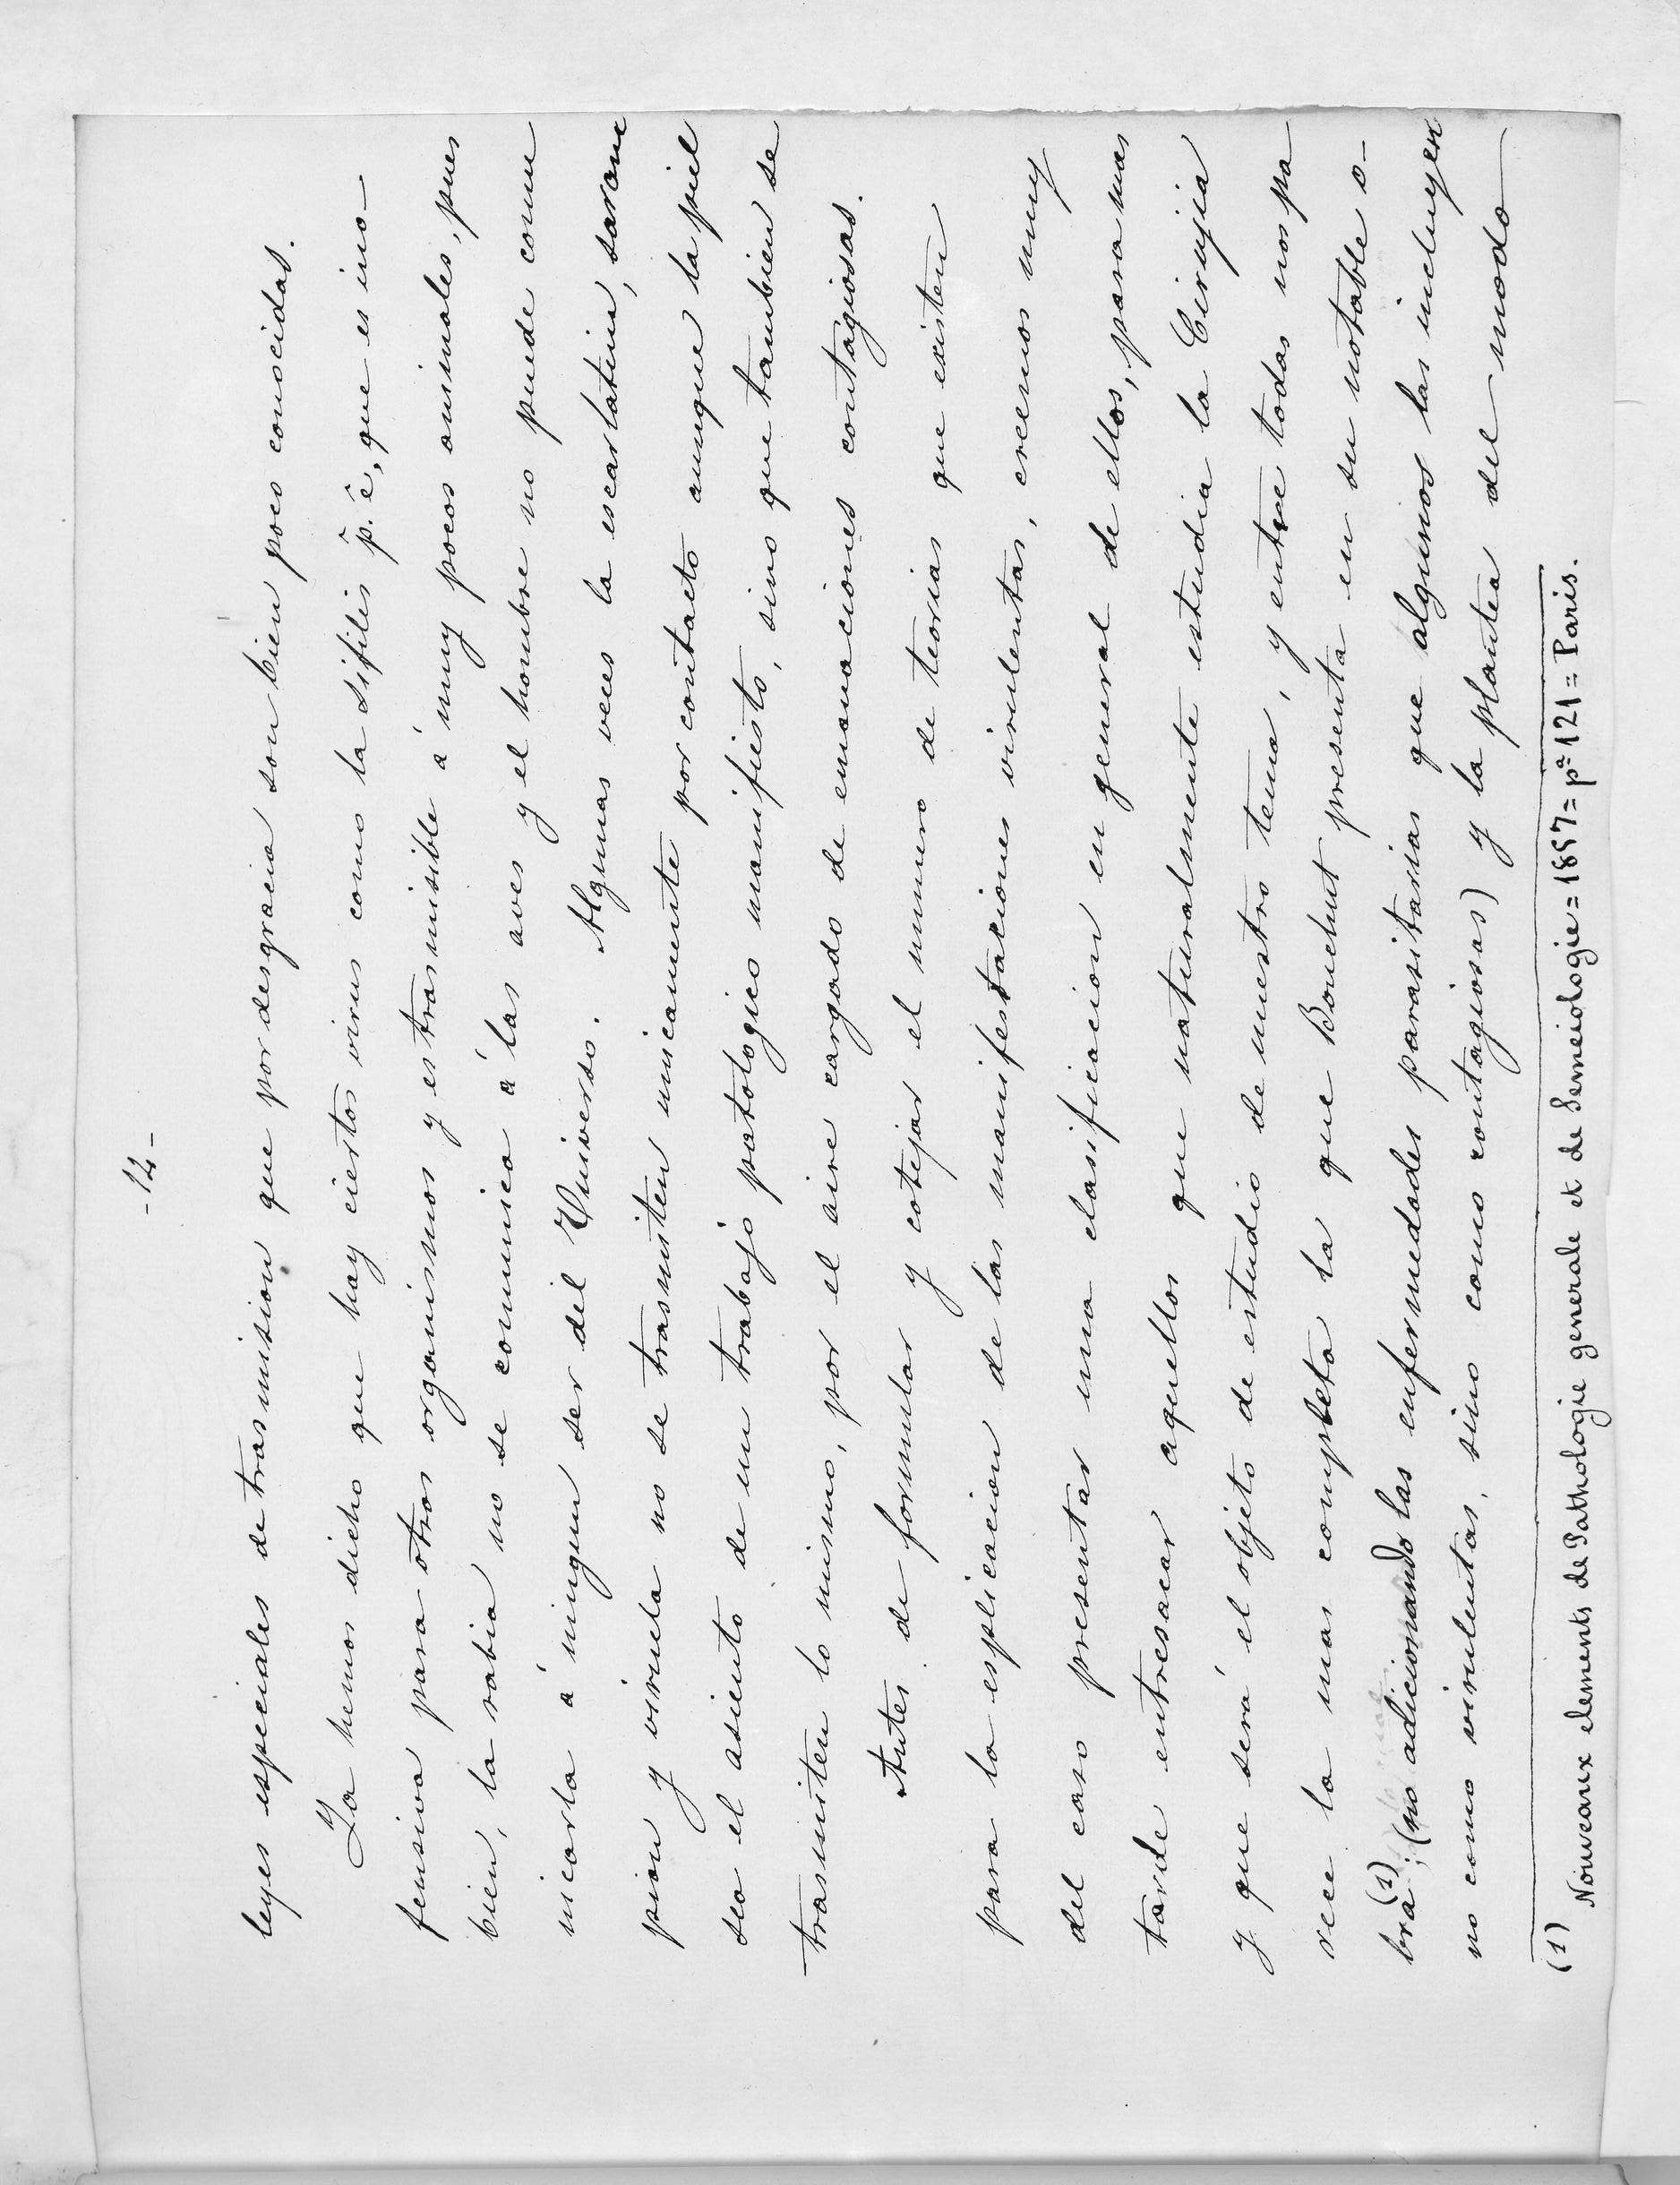 -12-
leyes especiales de trasmision que por desgracia son bien poco conocidas.
Ya hemos dicho que hay ciertos virus como la sifilis p. ê, que es ino-
fensiva para otros organismos y es trasmisible á muy pocos animales, pues
bien, la rabia no se comunica á las aves y el hombre no puede comu
nicarla á ningun ser del Universo. Algunas veces la escarlatina, saram
pion y viruela no se trasmiten unicamente por contacto aunque la piel
sea el asiento de un trabajo patologico manifiesto, sino que tambien se
trasmiten lo mismo, por el aire cargado de emanaciones contagiosas.
Antes de formular y cotejar el numero de teorias que existen
para la esplicacion de las manifestaciones virulentas, creemos muy
del caso presentar una clasificacion en general de ellos, para mas
tarde entresacar aquellos que naturalmente estudia la Cirujia
y que será el objeto de estudio de nuestro tema, y entre todas nos pa
rece la mas completa la que Bouchut presenta en su notable o-
bra (1); (no adicionando las enfermedades parasitarias que algunos las incluyen
no como virulentas, sino como contagiosas) y la plantea del modo
(1) Nouveaux elements de Pathologie generale et de Semeiologie = 1857 = pª 121 = Paris.